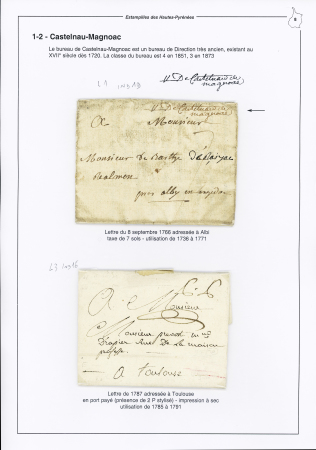 Estampilles des Hautes-Pyrénées
8
1-2 - Castelnau-Magnoac
Le bureau de Castelnau-Magnoac est un bureau de Direction très ancien, existant au
XVIIe siècle dès 1720. La classe du bureau est 4 en 1851, 3 en 1873
De Castelnau de
magnoac
L1
De Castelnau de
magnoac
A Monsieur
Monsieur de Barthe
Realmon
par alby en
Lettre du 8 septembre 1766 adressée à Albi
taxe de 7 sols - utilisation de 1736 à 1771
L3
A Monsieur
Monsieur
de la maison
A Toulouse
Lettre de 1787 adressée à Toulouse
en port payé (présence de 2 P stylisé) - impression à sec
utilisation de 1785 à 1791